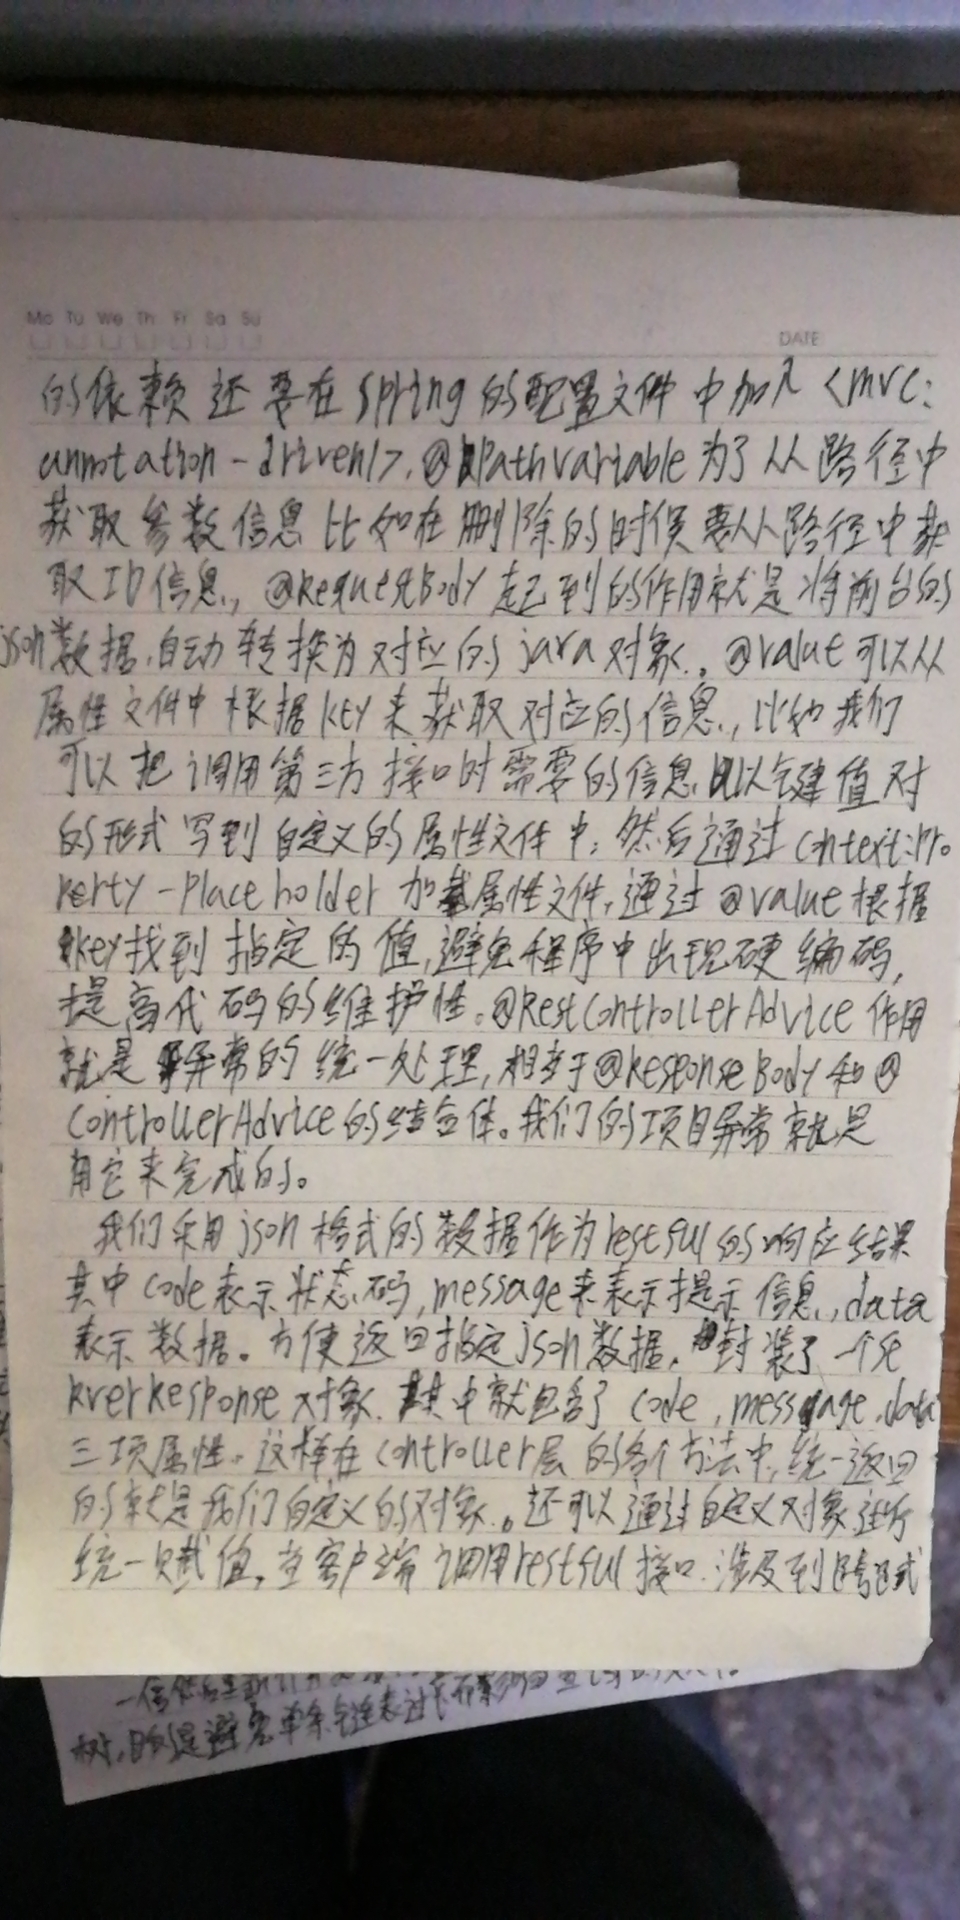 Mo Tu We Th Fr Sa Su
DATE
的依赖还要在spring的配置文件中加入<mvc:
annotation-driven/>.@PathVariable为了从路径中
获取参数信息比如在删除的时候要从路径中获
取ID信息,@RequestBody起到的作用就是将前台的
json数据,自动转换为对应的java对象.@value可以从
属性文件中根据key来获取对应的信息,比如我们
可以把调用第三方接口时需要的信息,以键值对
的形式写到自定义的属性文件中;然后通过context:pro
perty-placeholder加载属性文件,通过@value根据
key找到指定的值,避免程序中出现硬编码,
提高代码的维护性。@RestControllerAdvice作用
就是异常的统一处理,相当于@ResponseBody和@
ControllerAdvice的结合体。我们的项目异常就是
用它来完成的。
我们采用json格式的数据作为restful的响应结果
其中code表示状态码,message来表示提示信息,data
表示数据。方便返回指定json数据,封装了一个se
rverResponse对象.其中就包含了code,message,data
三项属性。这样在controller层的各个方法中,统一返回
的就是我们自定义的对象。还可以通过自定义对象进行
统一赋值,当客户端调用restful接口.涉及到跨域
树,目的是避免单条链表过长